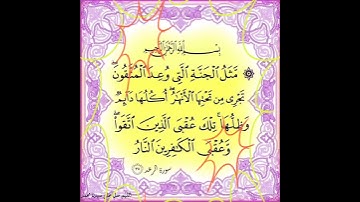 بِسْمِ ٱللَّهِ ٱلرَّحْمَٰنِ ٱلرَّحِيمِ
۞ مَّثَلُ ٱلْجَنَّةِ ٱلَّتِى وُعِدَ ٱلْمُتَّقُونَ ۖ
تَجْرِى مِن تَحْتِهَا ٱلْأَنْهَٰرُ ۖ أُكُلُهَا دَآئِمٌ
وَظِلُّهَا ۚ تِلْكَ عُقْبَى ٱلَّذِينَ ٱتَّقَوا۟ ۖ
وَّعُقْبَى ٱلْكَٰفِرِينَ ٱلنَّارُ
سورة الرعد